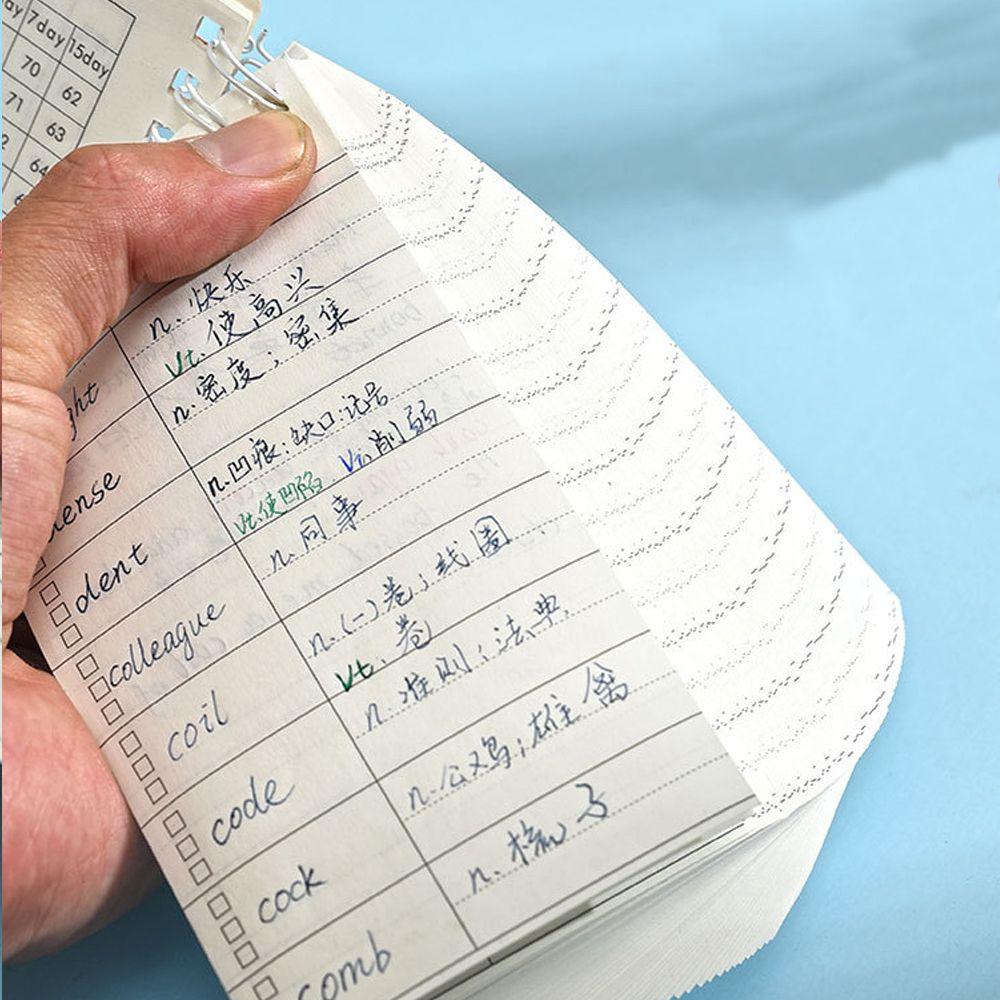 7day 15day
70 62
71 63
64
n. 快乐
ght vt. 使高兴
ense n. 密度；密集
dent n. 凹痕；缺口；记号
vt. 使凹陷 vi. 削弱
colleague n. 同事
coil n. (一)卷；线圈
vt. 卷
code n. 准则；法典
cock n. 公鸡；雄禽
comb n. 梳子